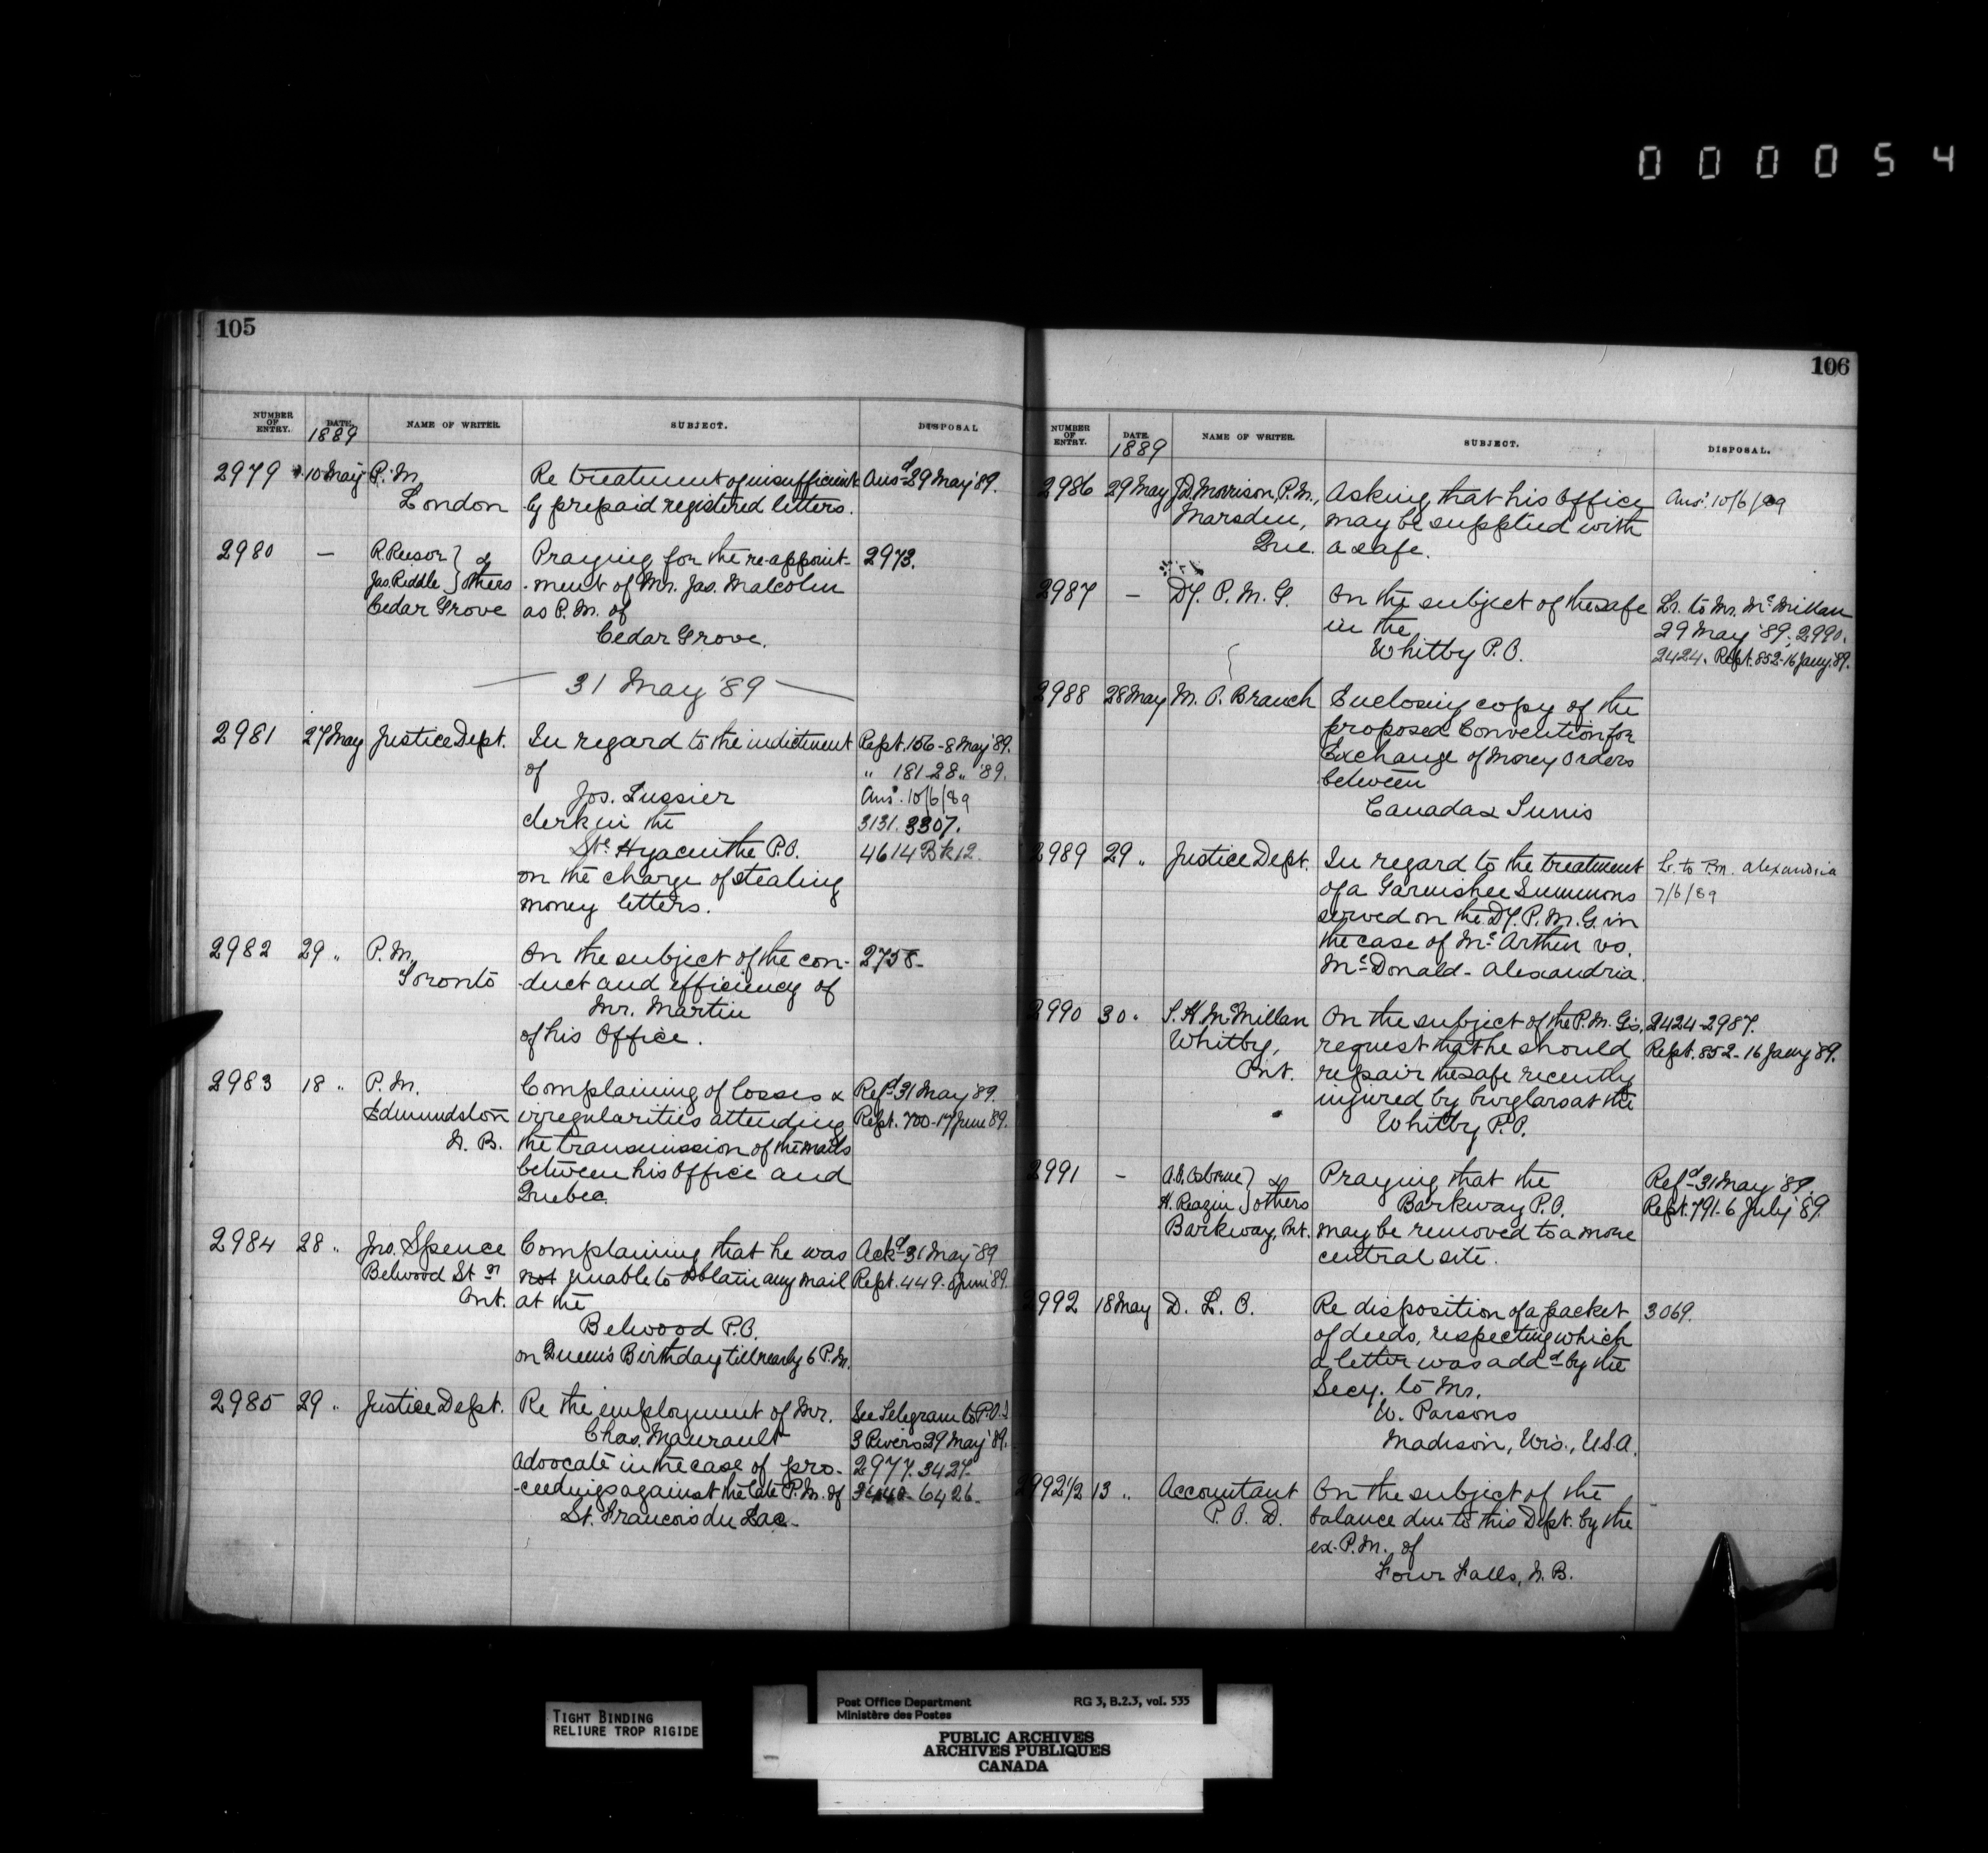 000054
105
NUMBER OF ENTRY. DATE. 1889 NAME OF WRITER. SUBJECT. DISPOSAL
2979 10 May P.M. Re treatment of insufficient Ansd 29 May '89.
London ly prepaid registered letters.
2980 — R. Reesor } & Praying for the re-appoint- 2973.
Jas. Riddle } others -ment of Mr. Jas. Malcolm
Cedar Grove as P.M. of
Cedar Grove.
— 31 May '89 —
2981 27 May Justice Dept. In regard to the indictment Rept. 156-8 May '89.
of " 181-28 " '89.
Jos. Lussier Ansd. 10/6/89
clerk in the 3131. 3307.
Ste Hyacinthe P.O. 4614 Bk 12.
on the charge of stealing
money letters.
2982 29 " P.M. On the subject of the con- 2758-
Toronto -duct and efficiency of
Mr. Martin
of his Office.
2983 18 " P.M. Complaining of losses & Refd 31 May '89.
Edmundston irregularities attending Rept. 700-17 June '89.
N.B. the transmission of the mails
between his Office and
Quebec.
2984 28 " Jno. Spence Complaining that he was Ackd 31 May '89
Belwood Stn not unable to obtain any mail Rept. 449- June '89.
Ont. at the
Belwood P.O.
on Queen's Birthday till nearly 6 P.M.
2985 29 " Justice Dept. Re the employment of Mr. See Telegram to P.O.I
Chas. Maurault 3 Rivers 29 May '89.
advocate in the case of pro- 2977. 3427.
-ceedings against the late P.M. of 6426-
St. Francois du Lac-
106
NUMBER OF ENTRY. DATE. 1889 NAME OF WRITER. SUBJECT. DISPOSAL.
2986 29 May J.D. Morrison, P.M., Asking that his Office Ansd. 10/6/89
Marsden, may be supplied with
Que. a safe.
2987 — Dy. P.M.G. On the subject of the safe Lr. to Mr. McMillan
in the 29 May '89. 2990.
Whitby P.O. 2424. Rept. 852-16 Jany '89.
2988 28 May M.O. Branch Enclosing copy of the
proposed Convention for
Exchange of Money Orders
between
Canada & Tunis
2989 29 " Justice Dept. In regard to the treatment Lr. to P.M. Alexandria
of a Garnishee Summons 7/6/89
served on the Dy. P.M.G. in
the case of McArthur vs.
McDonald- Alexandria.
2990 30 " S.H. McMillan On the subject of the P.M.G's 2424-2987.
Whitby, request that he should Rept. 852-16 Jany '89.
Ont. repair the safe recently
injured by burglars at the
Whitby P.O.
2991 — A.S. Osborne } & Praying that the Refd 31 May '89.
H. Reazin } others Barkway P.O. Rept. 791-6 July '89.
Barkway, Ont. may be removed to a more
central site.
2992 18 May D.L.O. Re disposition of a packet 3069.
of deeds, respecting which
a letter was addd by the
Secy. to Mr.
W. Parsons
Madison, Wis., U.S.A.
2992 1/2 13 " Accountant On the subject of the
P.O.D. balance due to this Dept. by the
ex-P.M. of
Four Falls, N.B.
TIGHT BINDING
RELIURE TROP RIGIDE
Post Office Department RG 3, B.2.3, vol. 535
Ministère des Postes
PUBLIC ARCHIVES
ARCHIVES PUBLIQUES
CANADA